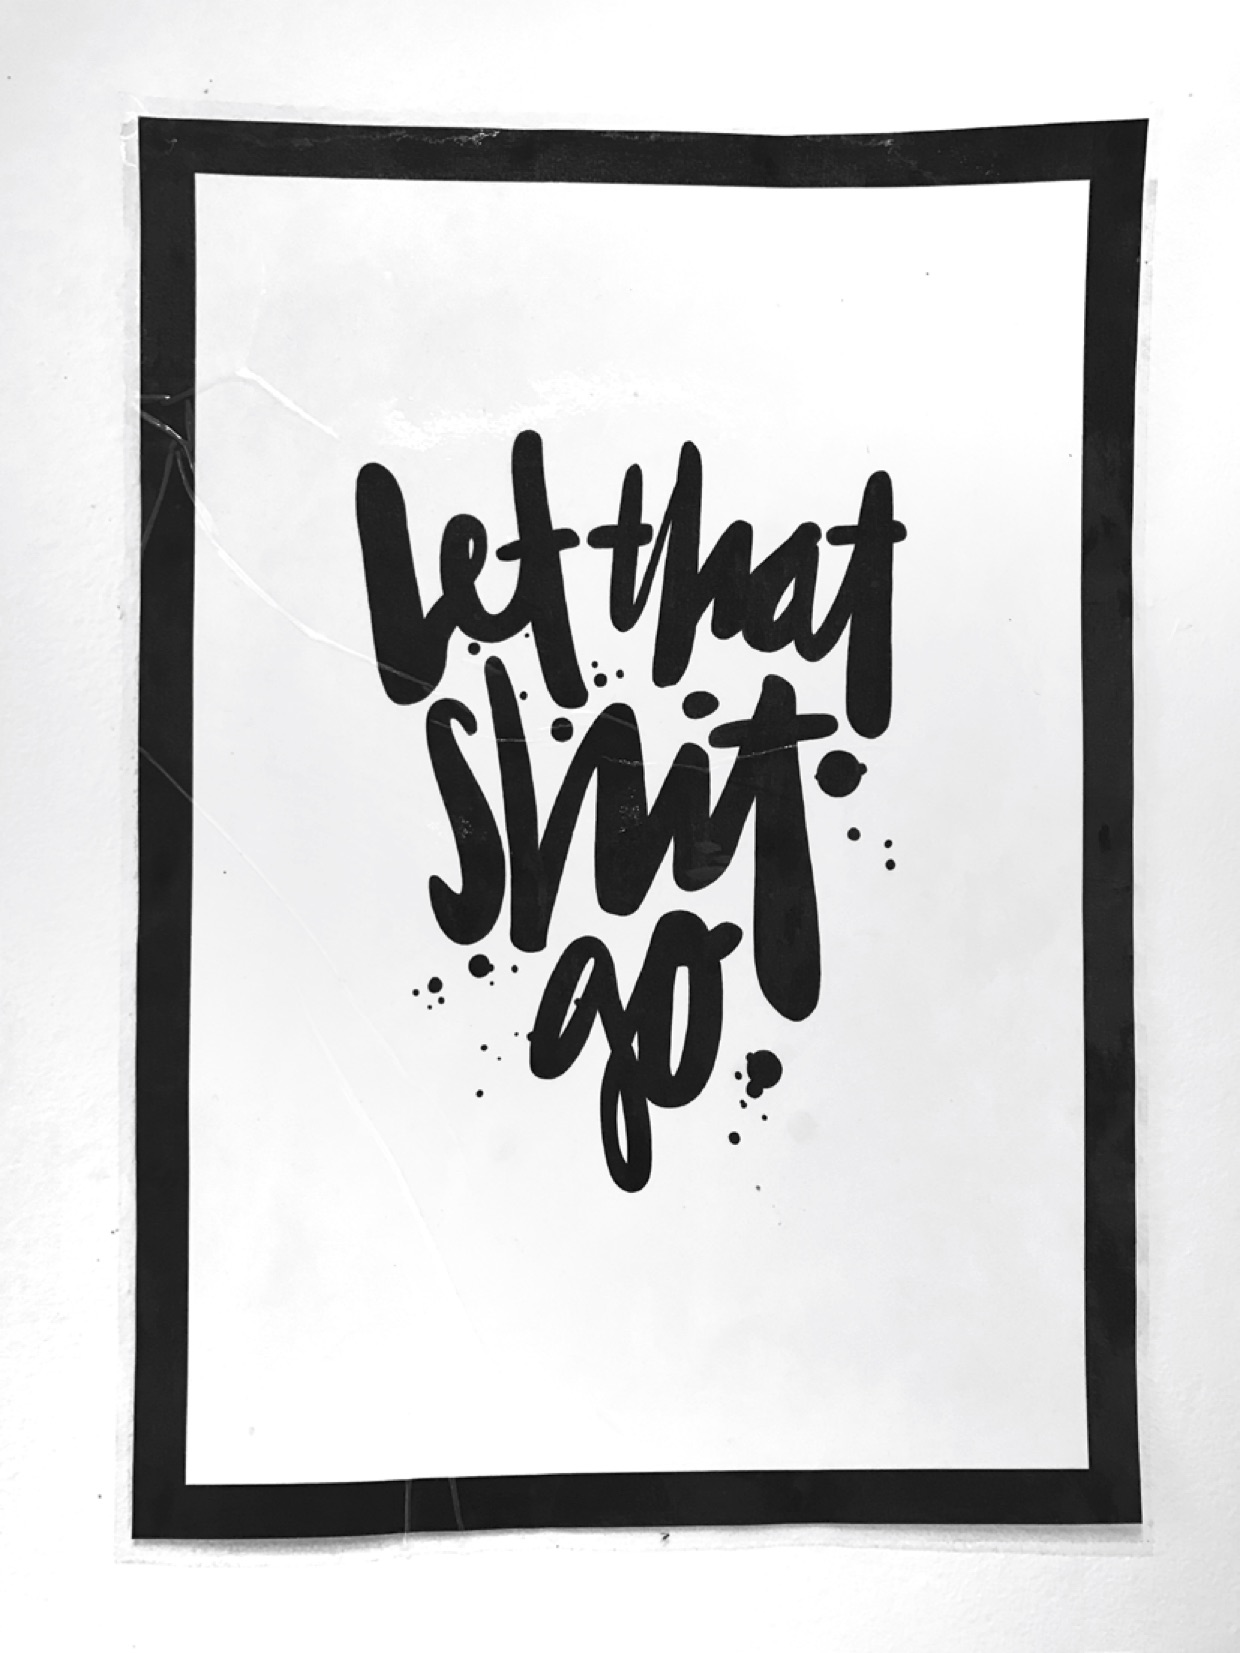 Let that
shit
go